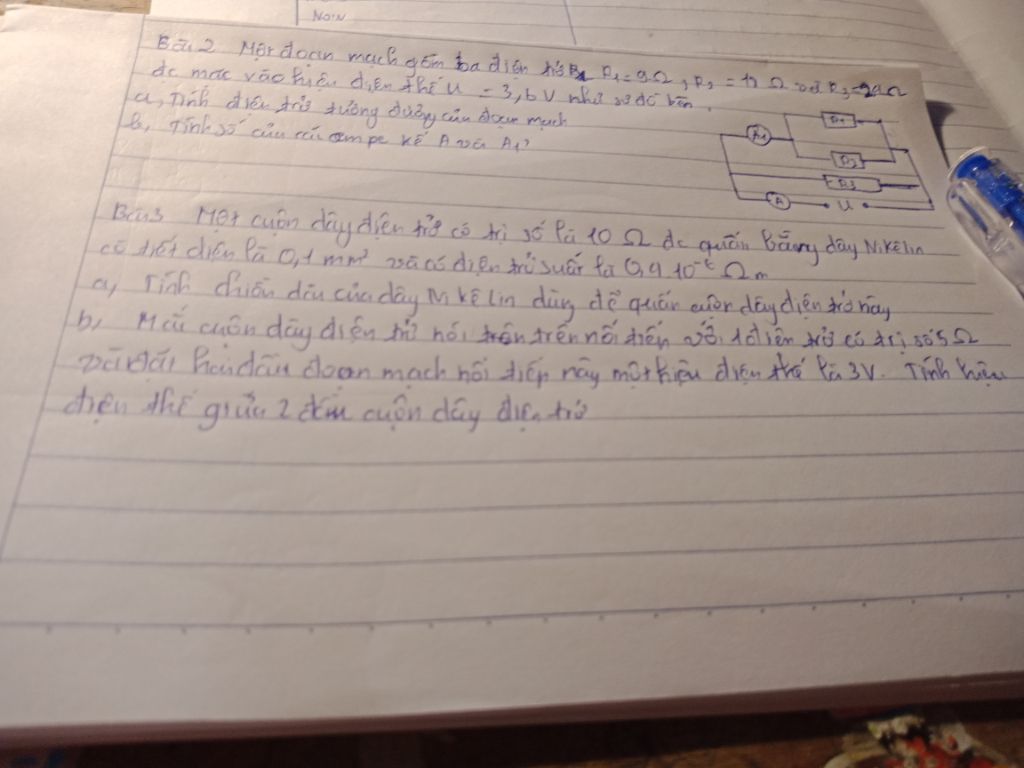 NOIN
Bài 2 Một đoạn mạch gồm ba điện trở R₁ = 9Ω, R₂ = Ω và R₃ = Ω
đc mắc vào hiệu điện thế U = 3,6V như sơ đồ bên.
a, Tính điện trở tương đương của đoạn mạch
b, Tính số của các ampe kế A và A₁?
A₁
R₁
R₂
R₃
A
U
Bài 3 Một cuộn dây điện trở có trị số là 10 Ω đc quấn bằng dây Nikêlin
có tiết diện là 0,1 mm² và có điện trở suất là 0,4 10⁻⁶ Ωm
a, Tính chiều dài của dây Nikêlin dùng để quấn cuộn dây điện trở này
b, Mắc cuộn dây điện trở nói trên nối tiếp với 1 điện trở có trị số 5Ω
và đặt hai đầu đoạn mạch nối tiếp này một hiệu điện thế là 3V. Tính hiệu
điện thế giữa 2 đầu cuộn dây điện trở